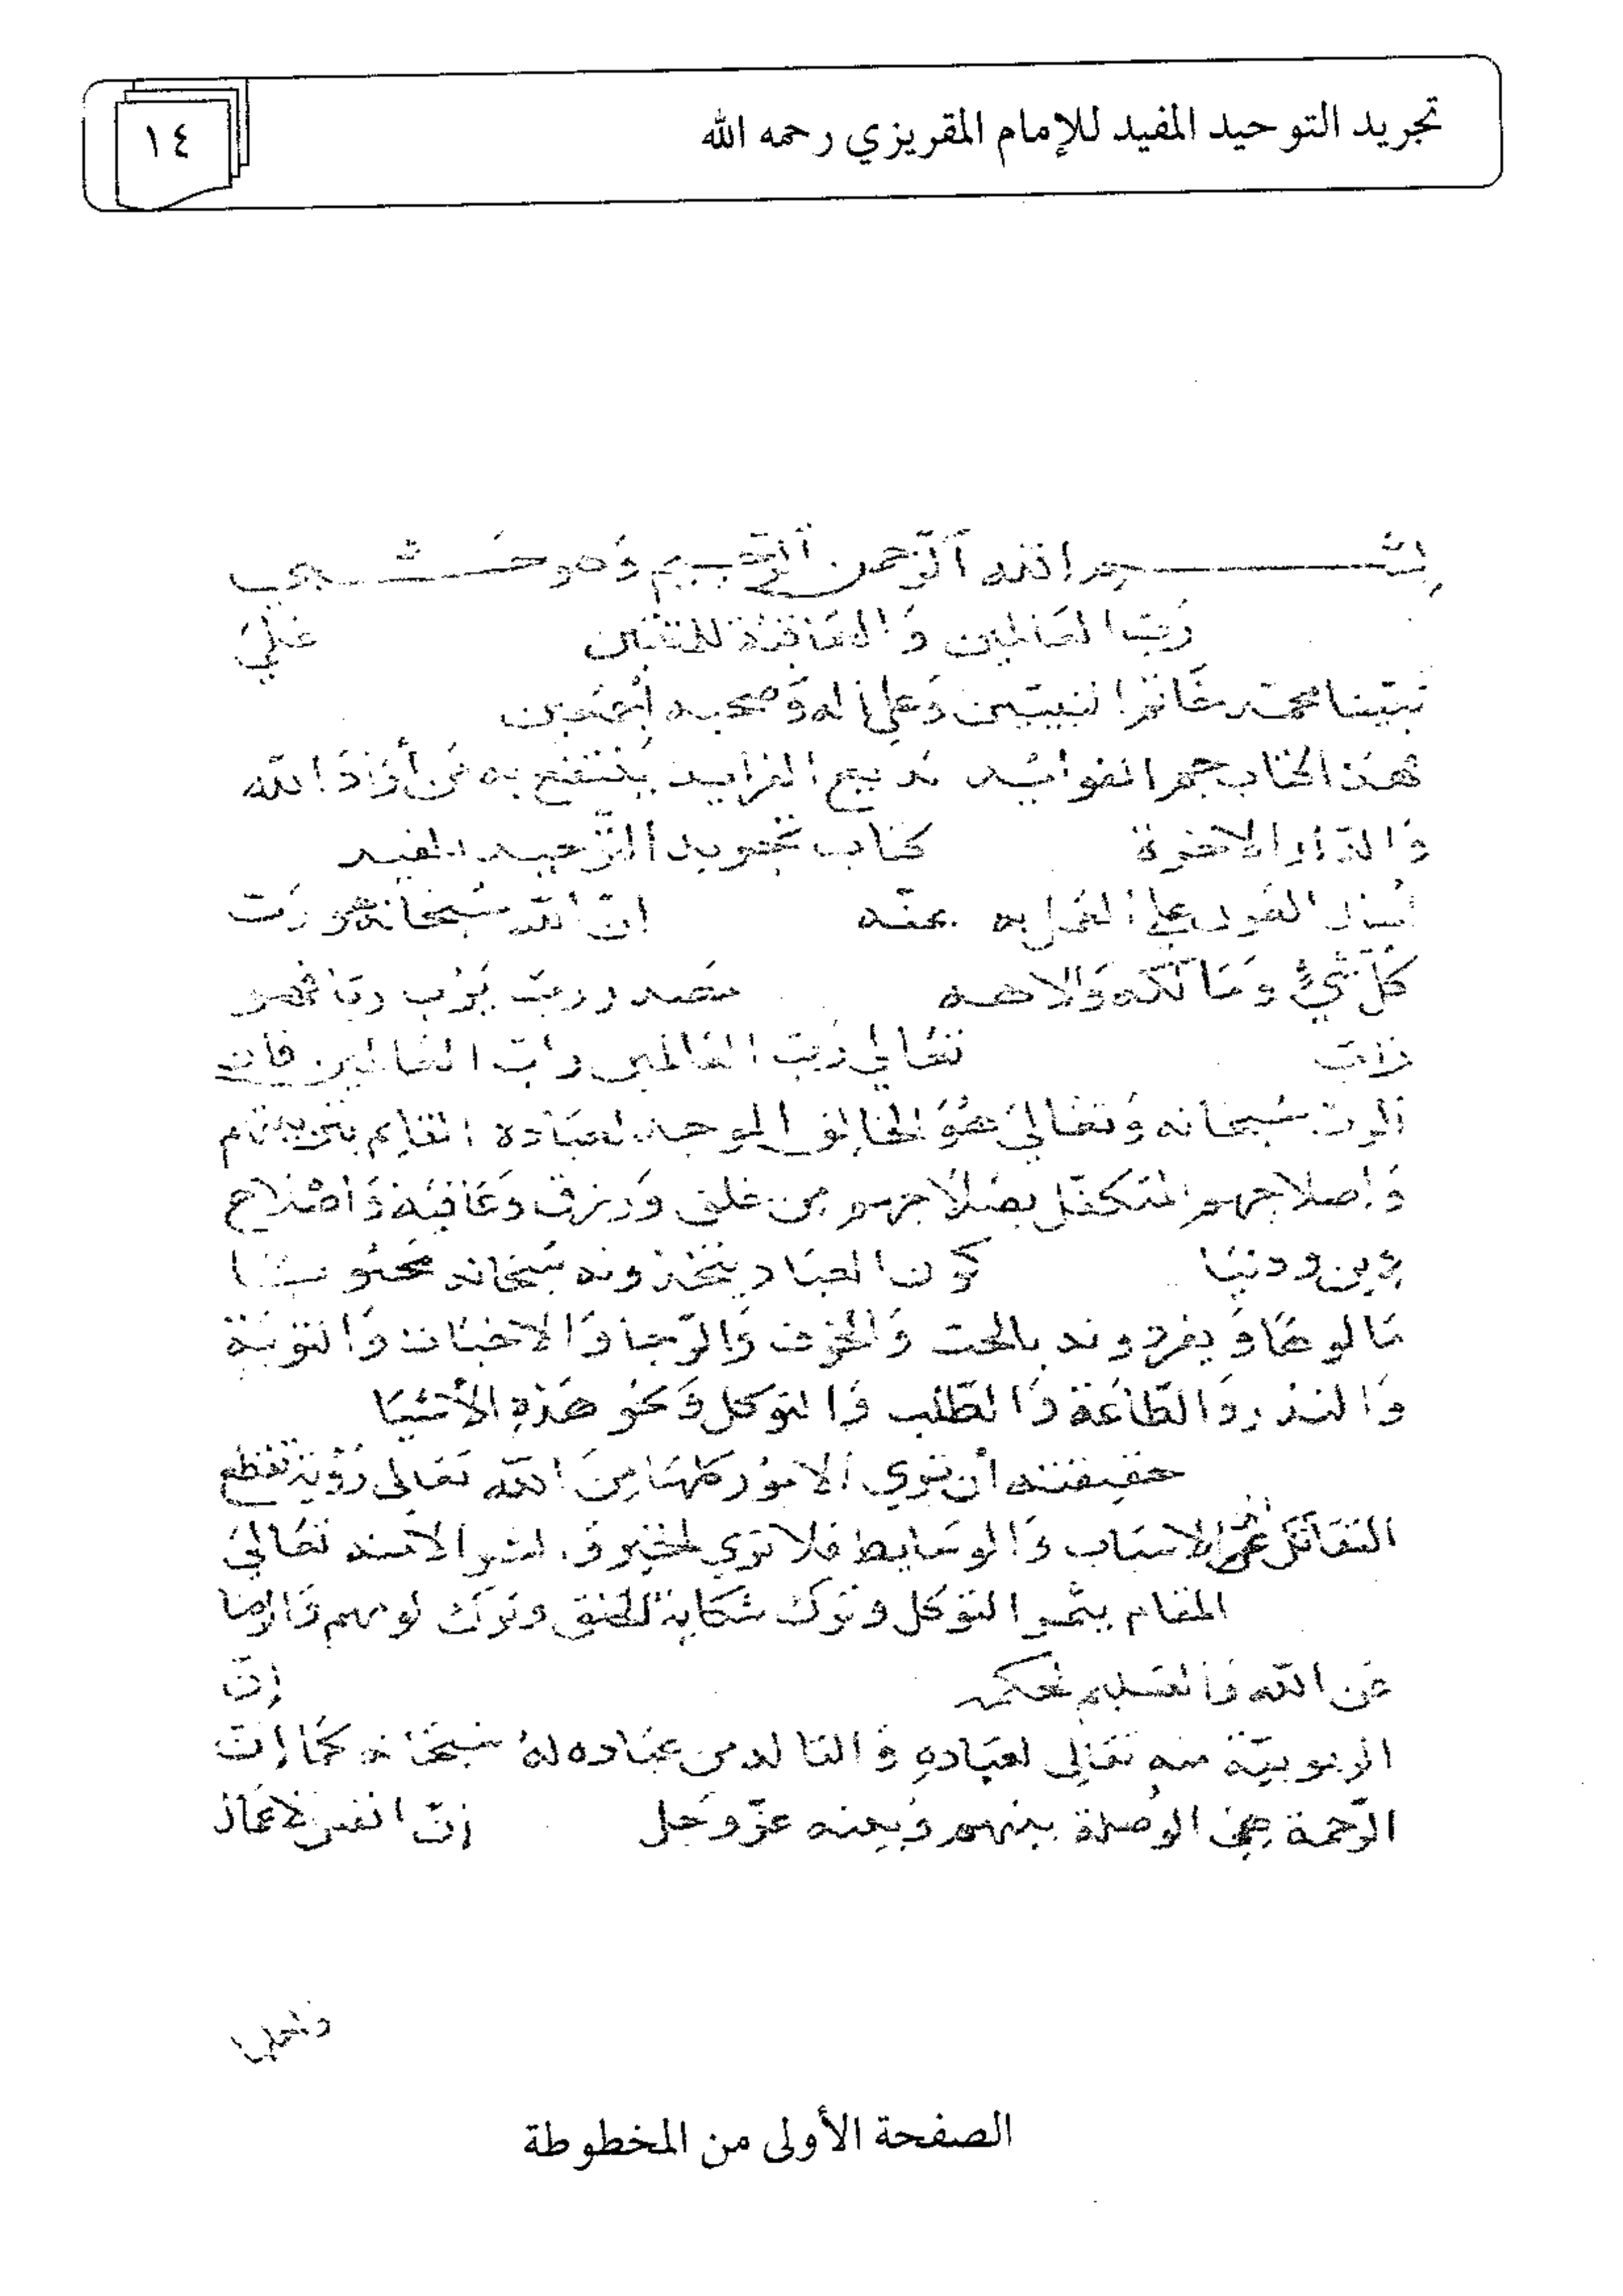 تجريد التوحيد المفيد للإمام المقريزي رحمه الله
١٤
بسم الله الرحمن الرحيم وهو حسبي
رب العالمين والعاقبة للمتقين على
نبينا محمد خاتم النبيين وعلى اله وصحبه أجمعين
فهذا كتاب جم الفوائد بديع الفرايد ينتفع به من أراد الله
والدار الاخرة كتاب تجريد التوحيد المفيد
العون على العمل به بمنه ان الله سبحانه هو رب
كل شيء ومالكه والاهه مصدر رب يرب ربا فهو
راب تعالى رب العالمين راب العالمين فان
الرب سبحانه وتعالى هو الخالق الموجد لعباده القايم بتربيتهم
واصلاحهم المتكفل بصلاحهم من خلق ورزق وعافية واصلاح
دين ودنيا كون العباد يتخذونه سبحانه محبوبا
مالوها ويفردونه بالحب والخوف والرجا والاخبات والتوبة
والنذر والطاعة والطلب والتوكل ونحو هذه الأشيا
حقيقته أن تري الامور كلها من الله تعالى رؤية تقطع
الاسباب والوسايط فلا تري الخير والشر الا منه تعالى
المقام يثمر التوكل وترك شكاية الخلق وترك لومهم والرضا
عن الله والتسليم لحكمه إن
الربوبية منه تعالى لعباده والتاله من عباده له سبحانه كما إن
الرحمة هي الوصلة بينهم وبينه عز وجل إن أنفس الأعمال
الصفحة الأولى من المخطوطة